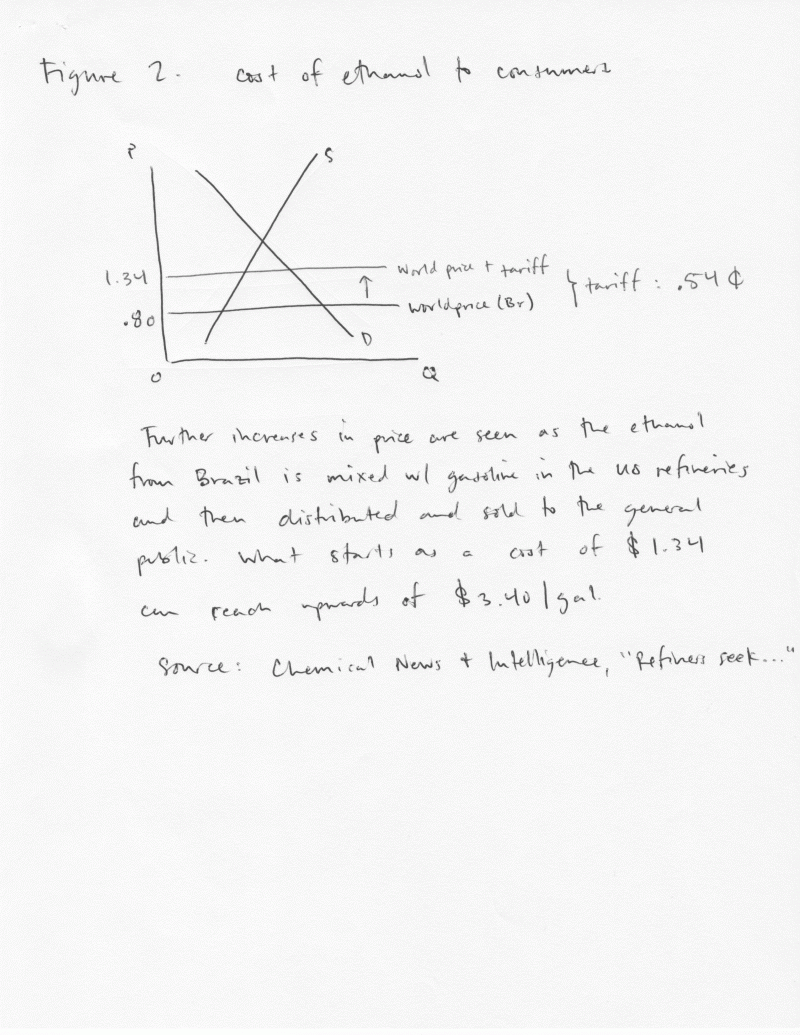 Figure 2. cost of ethanol to consumers
P
S
1.34
world price + tariff
.80
world price (Br)
tariff : .54 ¢
D
O
Q
Further increases in price are seen as the ethanol
from Brazil is mixed w/ gasoline in the US refineries
and then distributed and sold to the general
public. What starts as a cost of $1.34
can reach upwards of $3.40/gal.
Source: Chemical News + Intelligence, "Refiners seek..."